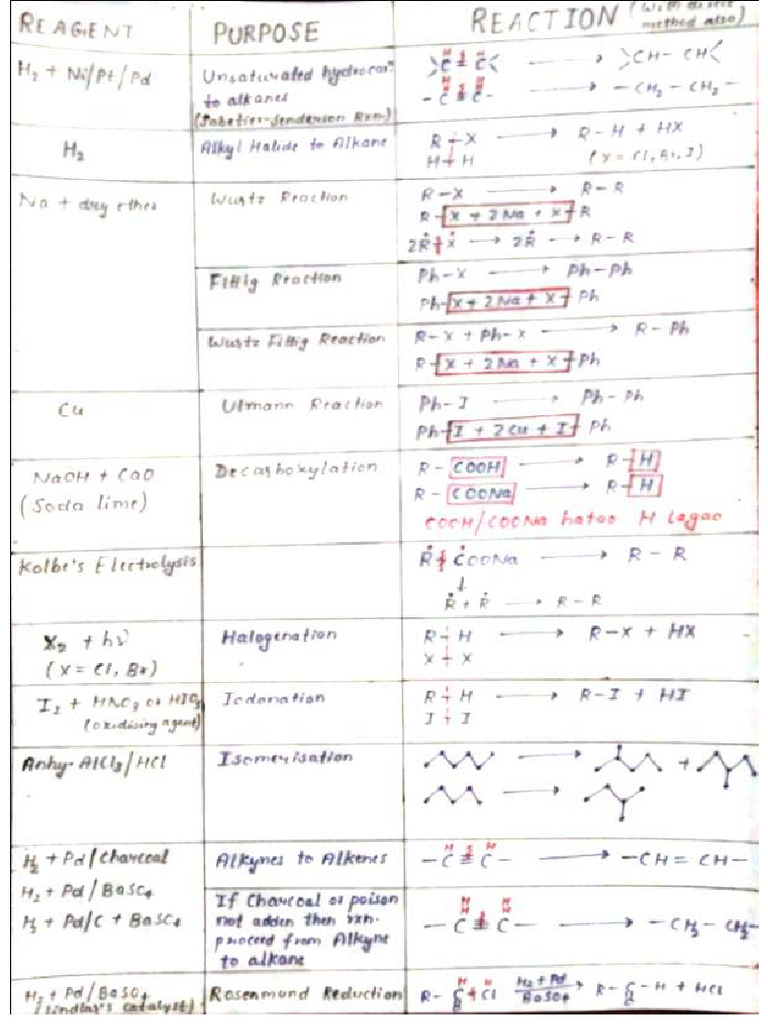 REAGENT
PURPOSE
REACTION (With
method also)
H₂ + Ni/Pt/Pd
Unsaturated hydrocar-
to alkanes
(Sabatier-Senderson Rxn)
>C = C< → >CH - CH<
- C ≡ C - → - CH₂ - CH₂ -
H₂
Alkyl Halide to Alkane
R + X → R - H + HX
H + H (X = Cl, Br, I)
Na + dry ether
Wurtz Reaction
R - X → R - R
R - X + 2Na + X - R
2R + X → 2R → R - R
Fittig Reaction
Ph - X → Ph - Ph
Ph - X + 2Na + X - Ph
Wurtz Fittig Reaction
R - X + Ph - X → R - Ph
R - X + 2Na + X - Ph
Cu
Ulmann Reaction
Ph - I → Ph - Ph
Ph - I + 2Cu + I - Ph
NaOH + CaO
(Soda lime)
Decarboxylation
R - COOH → R - H
R - COONa → R - H
COOH/COONa hatao H lagao
Kolbe's Electrolysis
R COONa → R - R
↓
R + R → R - R
X₂ + hν
(X = Cl, Br)
Halogenation
R + H → R - X + HX
X + X
I₂ + HNO₃ or HIO₃
(oxidising agent)
Iodonation
R + H → R - I + HI
I + I
Anhy. AlCl₃/HCl
Isomerisation
→ +
→
H₂ + Pd/Charcoal
H₂ + Pd/BaSO₄
H₂ + Pd/C + BaSO₄
Alkynes to Alkenes
H H
- C ≡ C - → - CH = CH -
If Charcoal or poison
not added then rxn.
proceed from Alkyne
to alkane
H H
H H
- C ≡ C - → - CH₂ - CH₂ -
H₂ + Pd/BaSO₄
(Lindlar's catalyst)
Rosenmund Reduction
R - C + Cl H₂ + Pd BaSO₄ → R - C - H + HCl